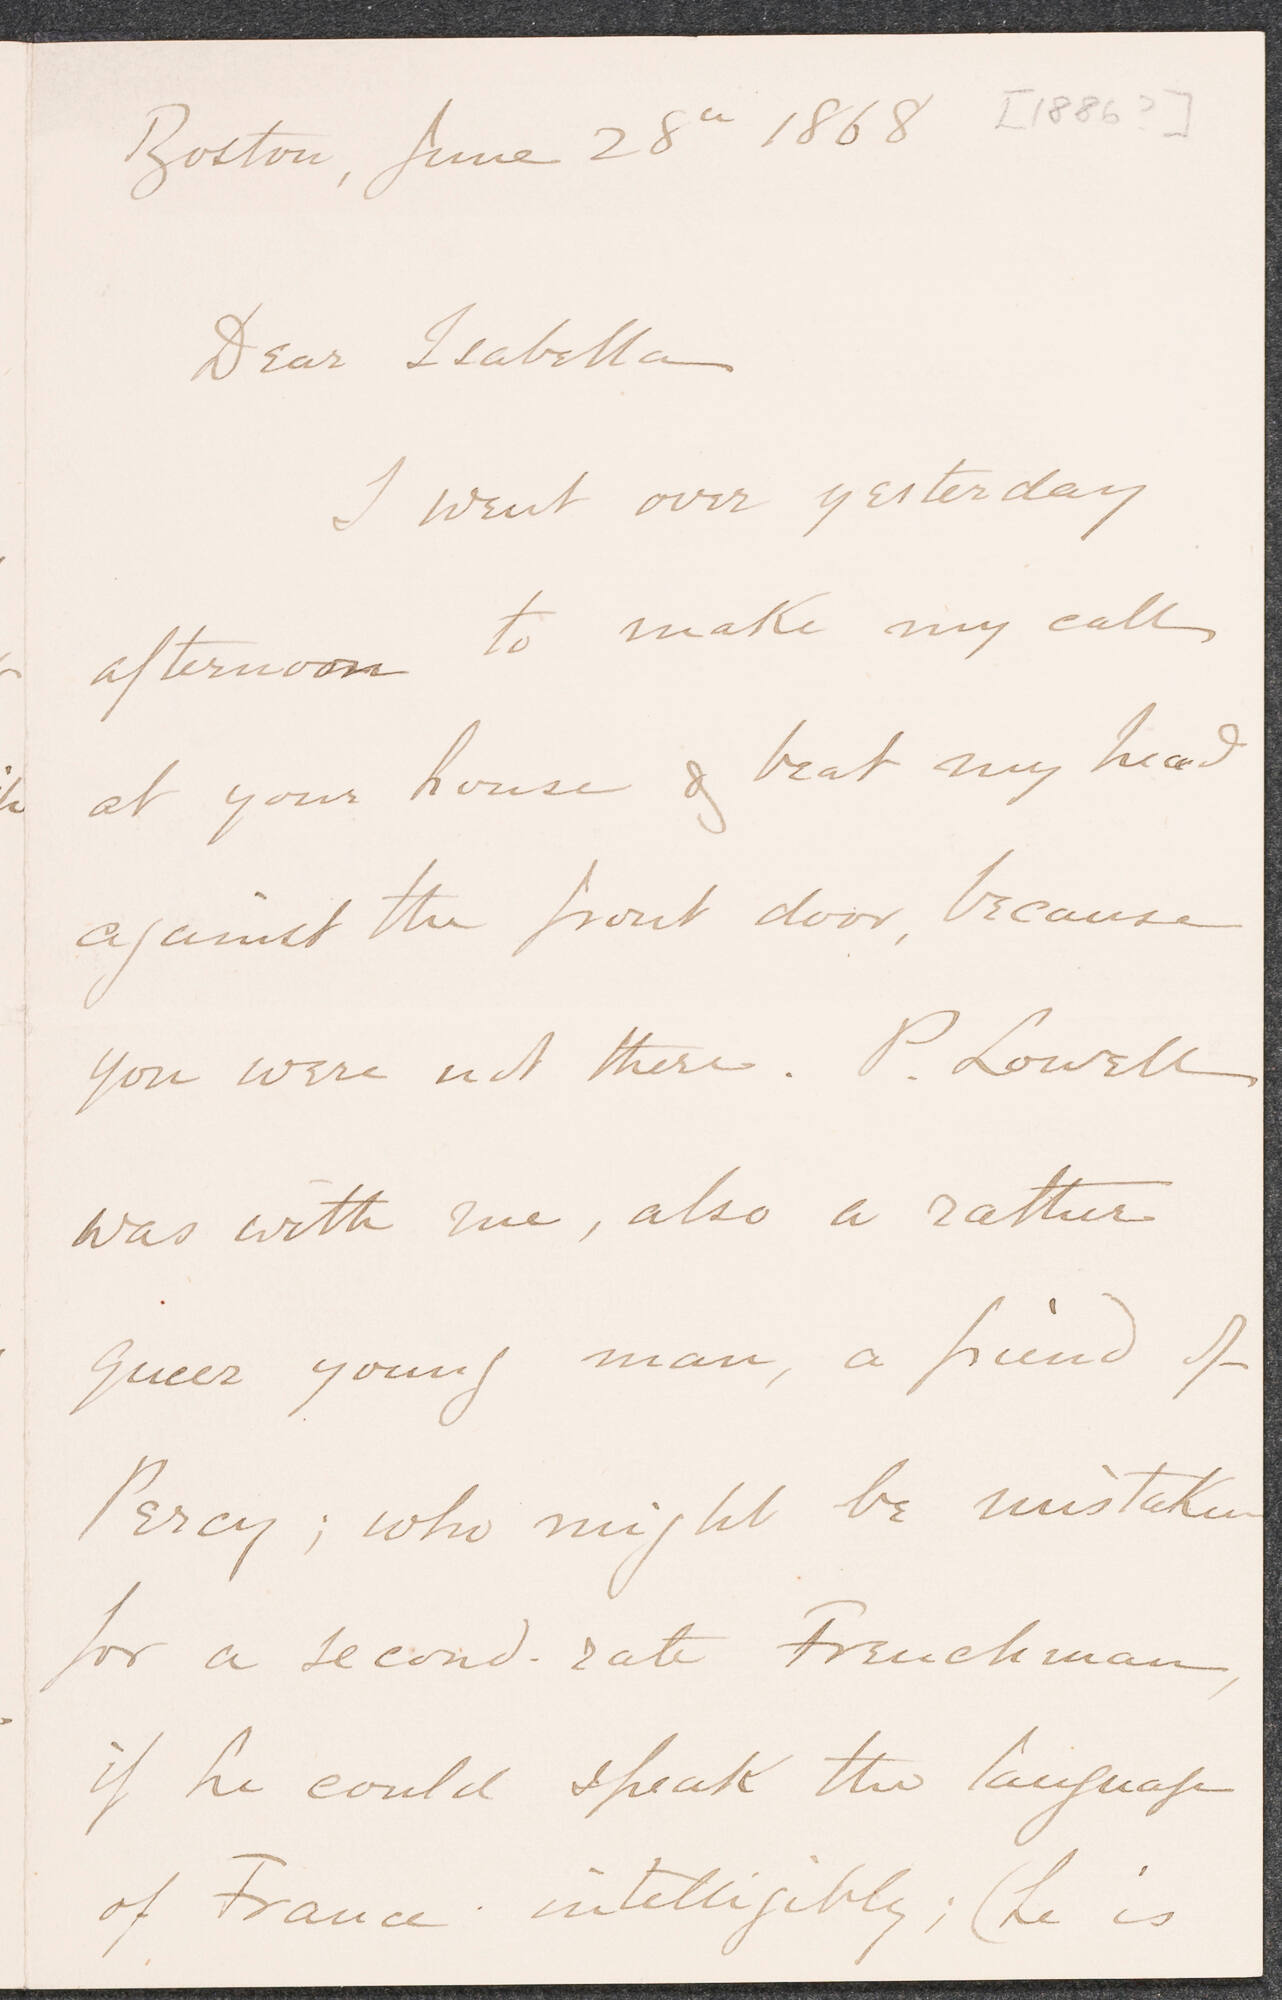 Boston, June 28th 1868 [1886?]
Dear Isabella
I went over yesterday
afternoon to make my call
at your house & beat my head
against the front door, because
you were not there. P. Lowell
was with me, also a rather
queer young man, a friend of
Percy; who might be mistaken
for a second-rate Frenchman,
if he could speak the language
of France intelligibly; (he is